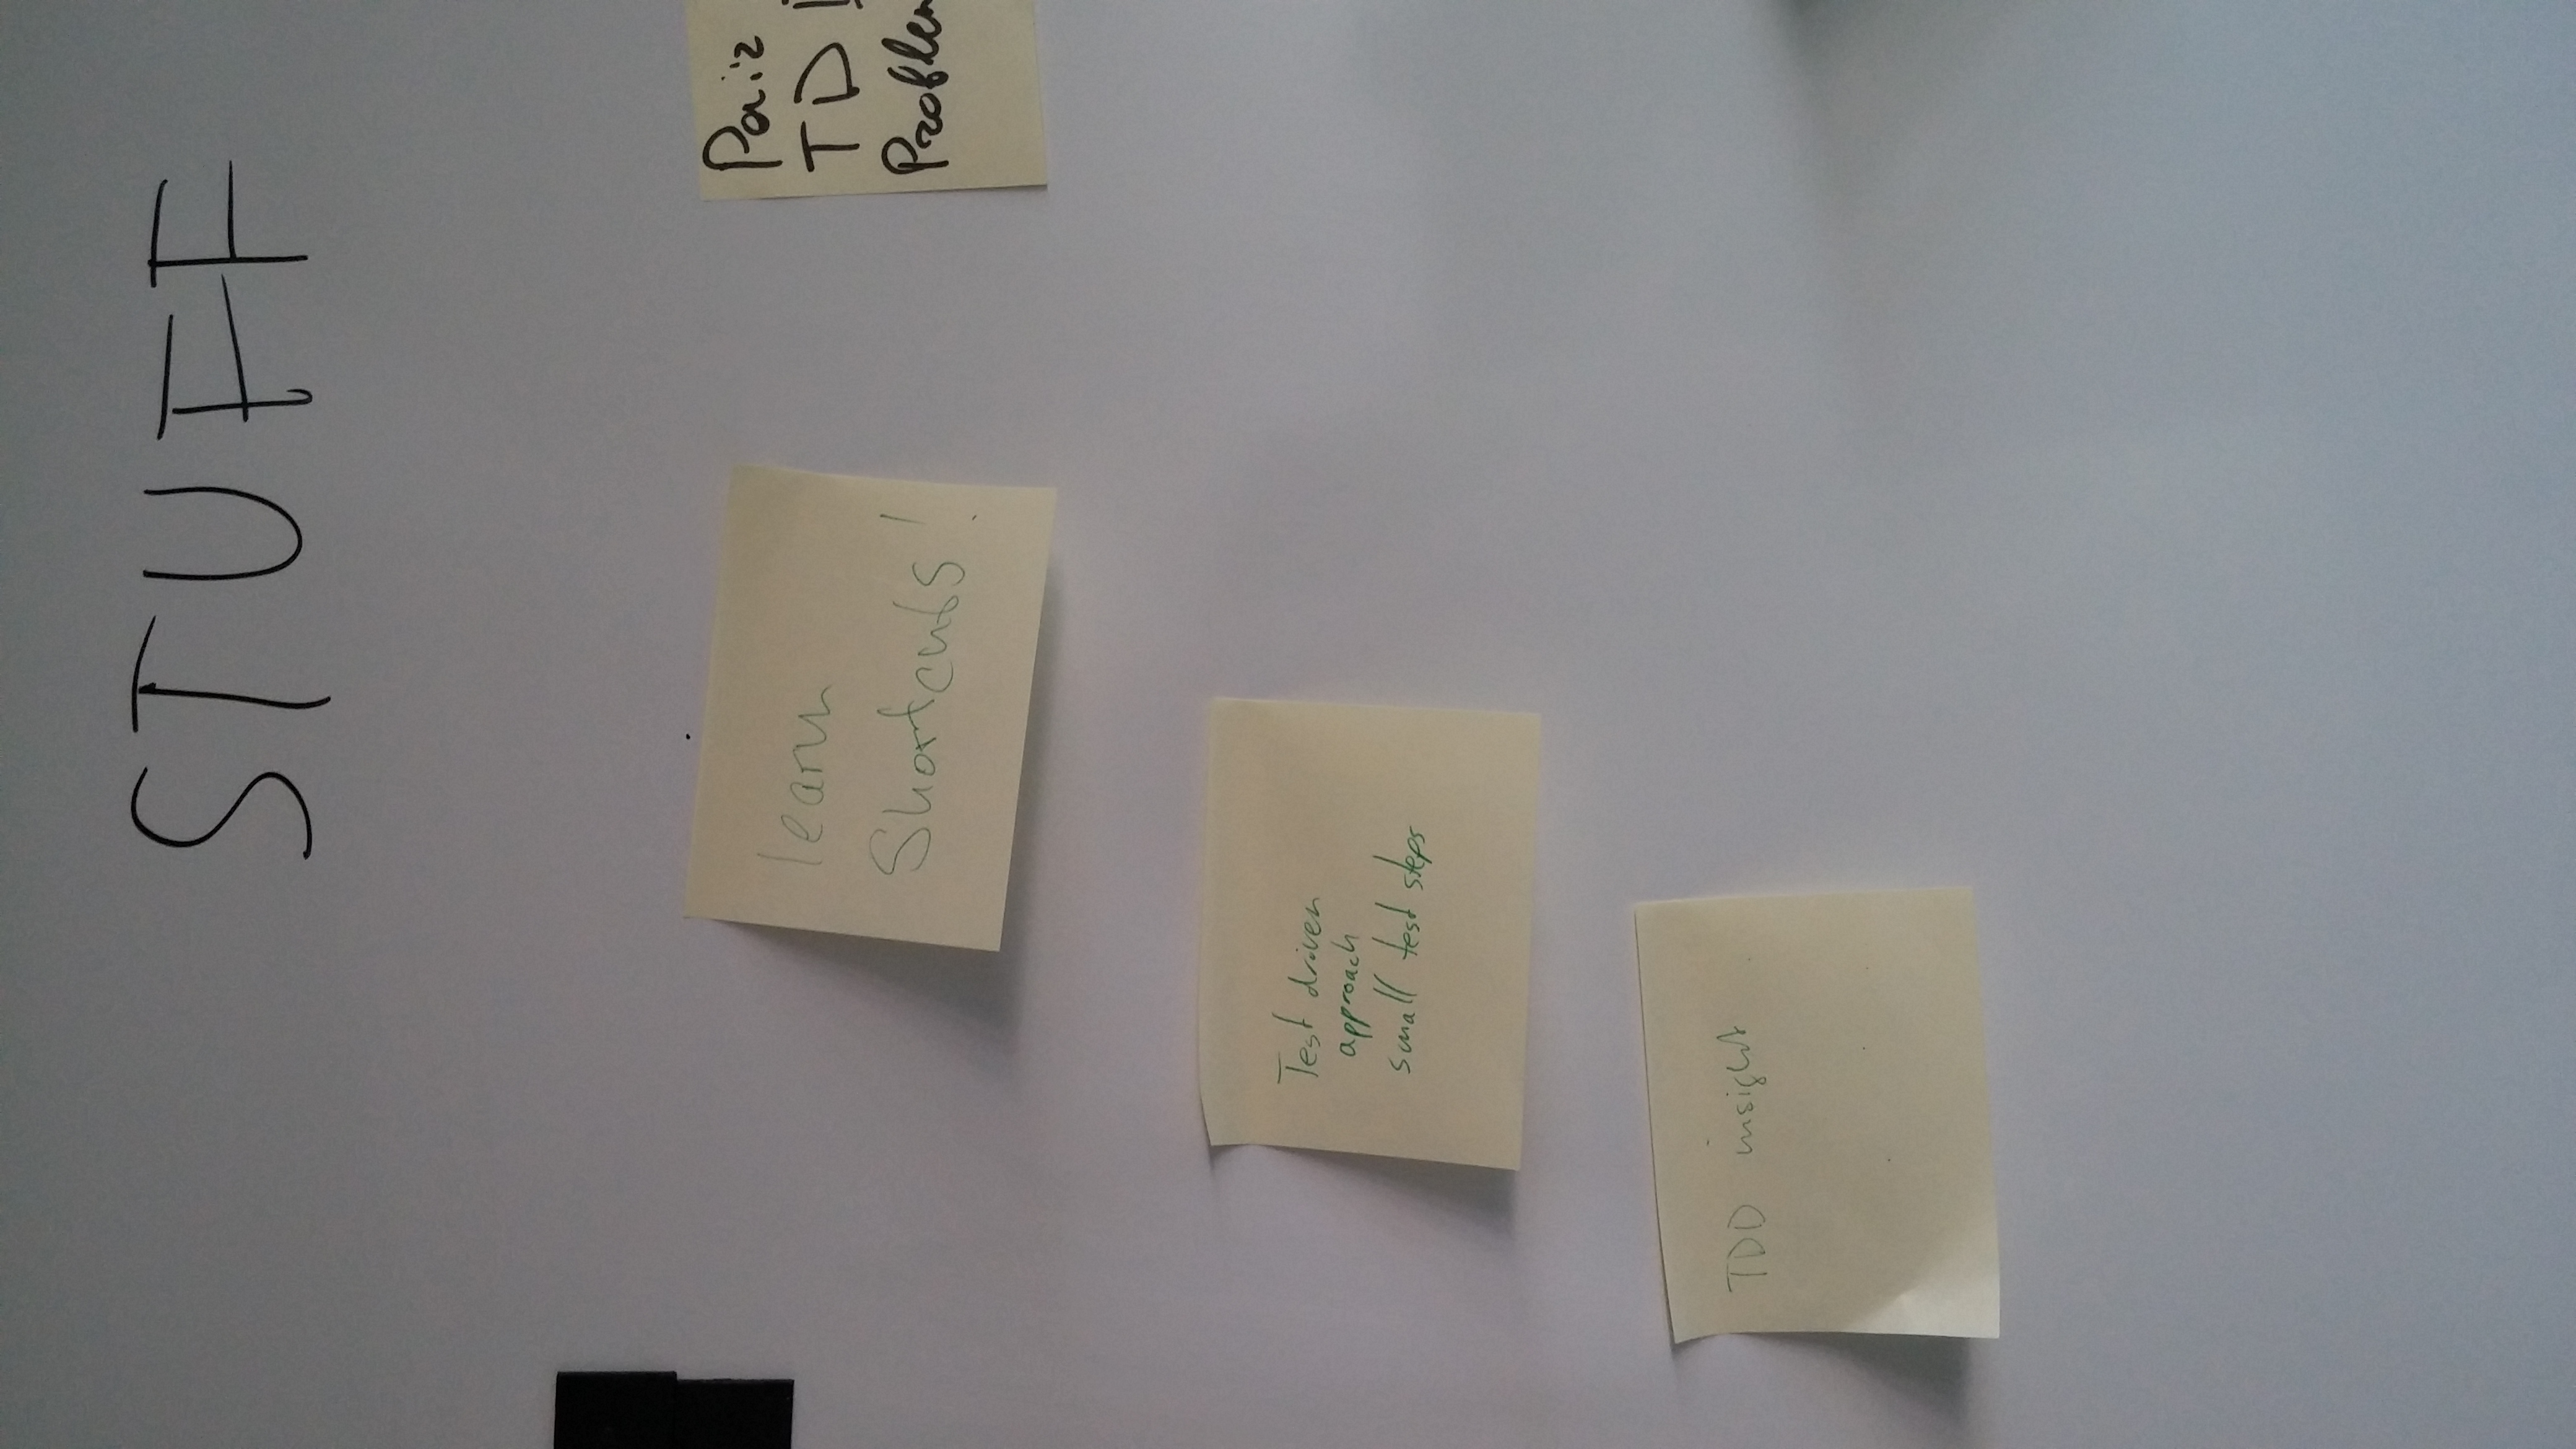 STUFF
learn
Shortcuts!
Pair
TDD
Test driven
approach
small test steps
TDD insight